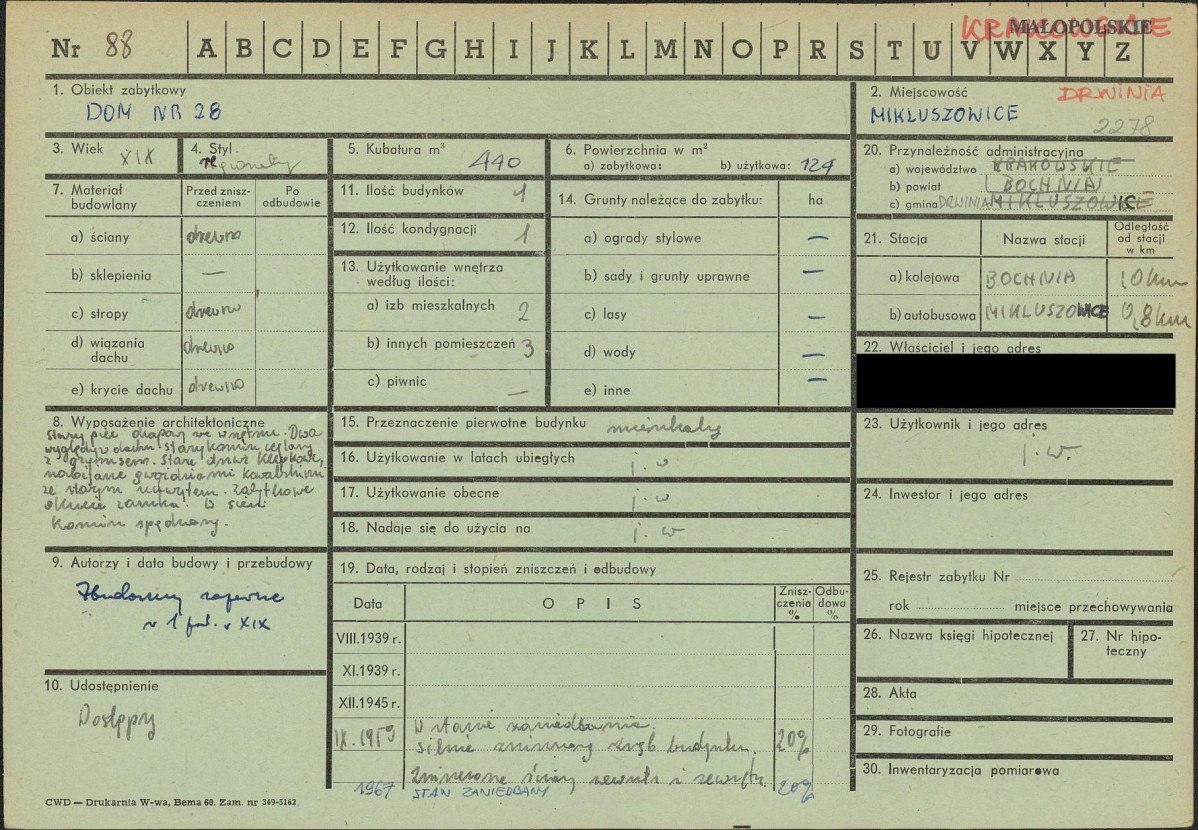 Nr 88 A B C D E F G H I J K L M N O P R S T U V W X Y Z
KRAKOWSKIE MAŁOPOLSKIE
1. Obiekt zabytkowy
DOM NR 28
2. Miejscowość DRWINIA
MIKLUSZOWICE
2278
3. Wiek XIX
4. Styl regionalny
5. Kubatura m³ 440
6. Powierzchnia w m²
a) zabytkowa: b) użytkowa: 124
7. Materiał budowlany Przed zniszczeniem Po odbudowie
a) ściany drewno
b) sklepienia —
c) stropy drewno
d) wiązania dachu drewno
e) krycie dachu drewno
11. Ilość budynków 1
12. Ilość kondygnacji 1
13. Użytkowanie wnętrza według ilości:
a) izb mieszkalnych 2
b) innych pomieszczeń 3
c) piwnic —
14. Grunty należące do zabytku: ha
a) ogrody stylowe —
b) sady i grunty uprawne —
c) lasy —
d) wody —
e) inne —
20. Przynależność administracyjna
a) województwo KRAKOWSKIE
b) powiat BOCHNIA
c) gmina DRWINIA MIKLUSZOWICE
21. Stacja Nazwa stacji Odległość od stacji w km
a) kolejowa BOCHNIA 10 km
b) autobusowa MIKLUSZOWICE 0,8 km
22. Właściciel i jego adres
8. Wyposażenie architektoniczne
Stary piec okapowy we wnętrzu. Dwa
wyglądy w dachu. Stary komin ceglany
z gzymsem. Stare drzwi klepkowe,
nabijane gwoździami kowalskimi
ze starym uchwytem. Zabytkowe
okucie zamka. W sieni
komin spędzony.
15. Przeznaczenie pierwotne budynku mieszkalny
16. Użytkowanie w latach ubiegłych j. w
17. Użytkowanie obecne j. w
18. Nadaje się do użycia na j. w
23. Użytkownik i jego adres
j. w.
24. Inwestor i jego adres
9. Autorzy i data budowy i przebudowy
Zbudowany zapewne
w 1 poł. w XIX
10. Udostępnienie
Dostępny
19. Data, rodzaj i stopień zniszczeń i odbudowy
Data OPIS Zniszczenia % Odbudowa %
VIII.1939 r.
XI.1939 r.
XII.1945 r.
IX.1959 W stanie zaniedbania.
Silnie zniszczony zrąb budynku. 20%
Zniszczone ściany zewnątrz i zewnątrz
1967 STAN ZANIEDBANY 20%
25. Rejestr zabytku Nr
rok miejsce przechowywania
26. Nazwa księgi hipotecznej
27. Nr hipoteczny
28. Akta
29. Fotografie
30. Inwentaryzacja pomiarowa
CWD — Drukarnia W-wa, Bema 60. Zam. nr 349-5162